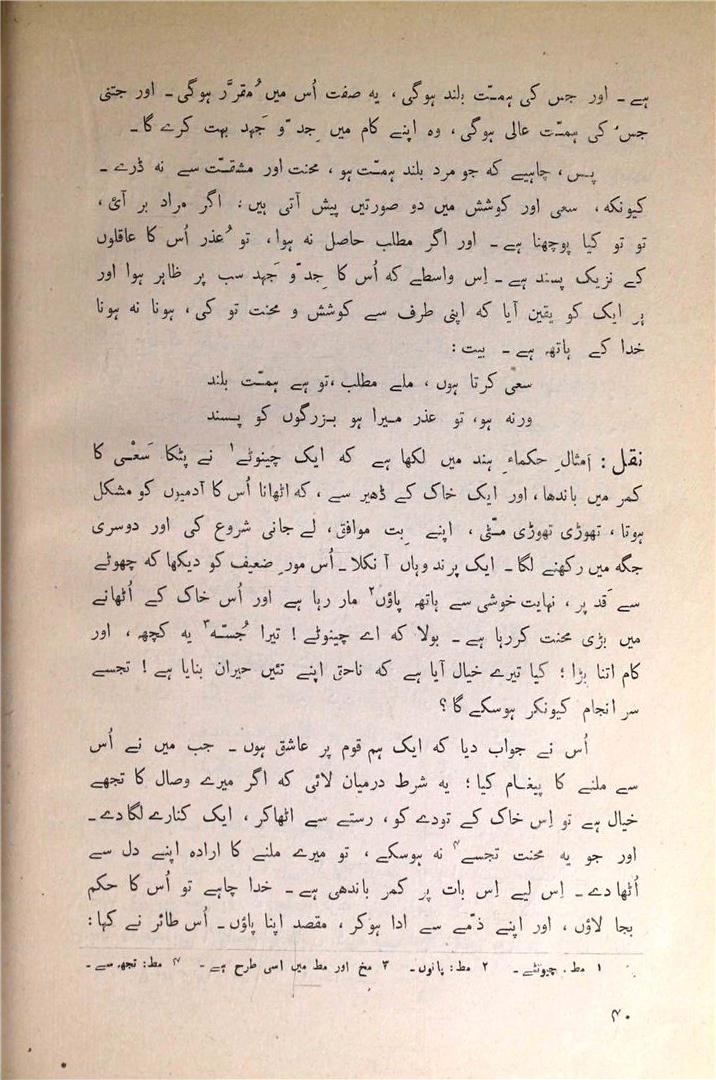 ہے ۔ اور جس کی ہمّت بلند ہوگی ، یہ صفت اُس میں مُقرَّر ہوگی ۔ اور جتنی
جس کی ہمّت عالی ہوگی ، وہ اپنے کام میں جِدّ و جَہد بہت کرے گا ۔
پس ، چاہیے کہ جو مرد بلند ہمّت ہو ، محنت اور مشقّت سے نہ ڈرے ۔
کیونکہ ، سعی اور کوشش میں دو صورتیں پیش آتی ہیں : اگر مراد بر آئی ،
تو تو کیا پوچھنا ہے ۔ اور اگر مطلب حاصل نہ ہوا ، تو عُذر اُس کا عاقلوں
کے نزیک پسند ہے ۔ اِس واسطے کہ اُس کا جِدّ و جَہد سب پر ظاہر ہوا اور
ہر ایک کو یقین آیا کہ اپنی طرف سے کوشش و محنت تو کی ، ہونا نہ ہونا
خدا کے ہاتھ ہے ۔ بیت :
سعی کرتا ہوں ، ملے مطلب ،تو ہے ہمّت بلند
ورنہ ہو ، تو عذر میرا ہو بزرگوں کو پسند
نقل : اَمثالِ حکماءِ ہند میں لکھا ہے کہ ایک چینوٹے۱ نے پٹکا سَعْی کا
کمر میں باندھا ، اور ایک خاک کے ڈھیر سے ، کہ اٹھانا اُس کا آدمیوں کو مشکل
ہوتا ، تھوڑی تھوڑی مٹّی ، اپنے بِت موافق ، لے جانی شروع کی اور دوسری
جگہ میں رکھنے لگا ۔ ایک پرند وہاں آ نکلا ۔ اُس مورِ ضعیف کو دیکھا کہ چھوٹے
سے قَد پر ، نہایت خوشی سے ہاتھ پاؤں۲ مار رہا ہے اور اُس خاک کے اُٹھانے
میں بڑی محنت کررہا ہے ۔ بولا کہ اے چینوٹے ! تیرا جُسّہ۳ یہ کچھ ، اور
کام اتنا بڑا ؛ کیا تیرے خیال آیا ہے کہ ناحق اپنے تئیں حیران بنایا ہے ! تجسے
سر انجام کیونکر ہوسکے گا ؟
اُس نے جواب دیا کہ ایک ہم قوم پر عاشق ہوں ۔ جب میں نے اُس
سے ملنے کا پیغام کیا ؛ یہ شرط درمیان لائی کہ اگر میرے وصال کا تجھے
خیال ہے تو اِس خاک کے تودے کو ، رستے سے اٹھاکر ، ایک کنارے لگادے ۔
اور جو یہ محنت تجسے۴ نہ ہوسکے ، تو میرے ملنے کا ارادہ اپنے دل سے
اُٹھادے ۔ اِس لیے اِس بات پر کمر باندھی ہے ۔ خدا چاہے تو اُس کا حکم
بجا لاؤں ، اور اپنے ذمّے سے ادا ہوکر ، مقصد اپنا پاؤں ۔ اُس طائر نے کہا :
۱ مط . چیونٹے ۔ ۲ مط : پانوں ۔ ۳ مخ اور مط میں اسی طرح ہے ۔ ۴ مط : تجھ سے ۔
۴۰